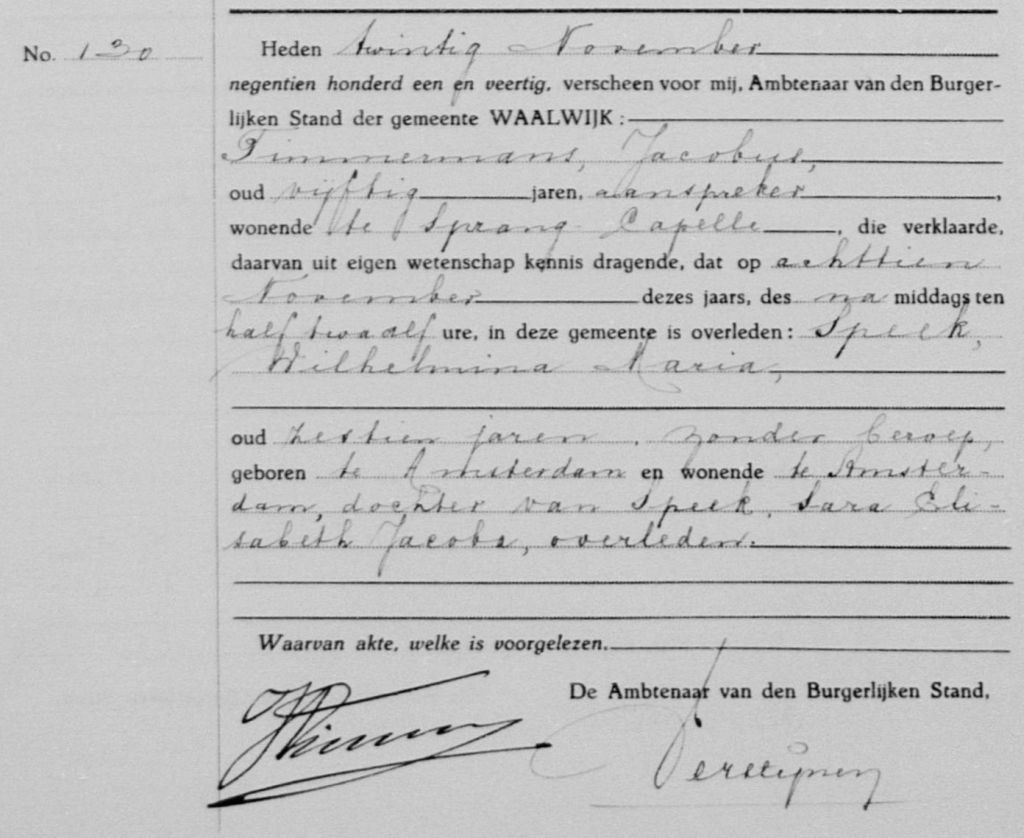 No. 130
Heden twintig November
negentien honderd een en veertig, verscheen voor mij, Ambtenaar van den Burger-
lijken Stand der gemeente WAALWIJK :
Timmermans, Jacobus,
oud vijftig jaren, aanspreker,
wonende te Sprang-Capelle, die verklaarde,
daarvan uit eigen wetenschap kennis dragende, dat op achttien
November dezes jaars, des na middags ten
half twaalf ure, in deze gemeente is overleden: Speek,
Wilhelmina Maria,
oud zestien jaren, zonder beroep,
geboren te Amsterdam en wonende te Amster-
dam, dochter van Speek, Sara Eli-
sabeth Jacoba, overleden.
Waarvan akte, welke is voorgelezen.
De Ambtenaar van den Burgerlijken Stand,